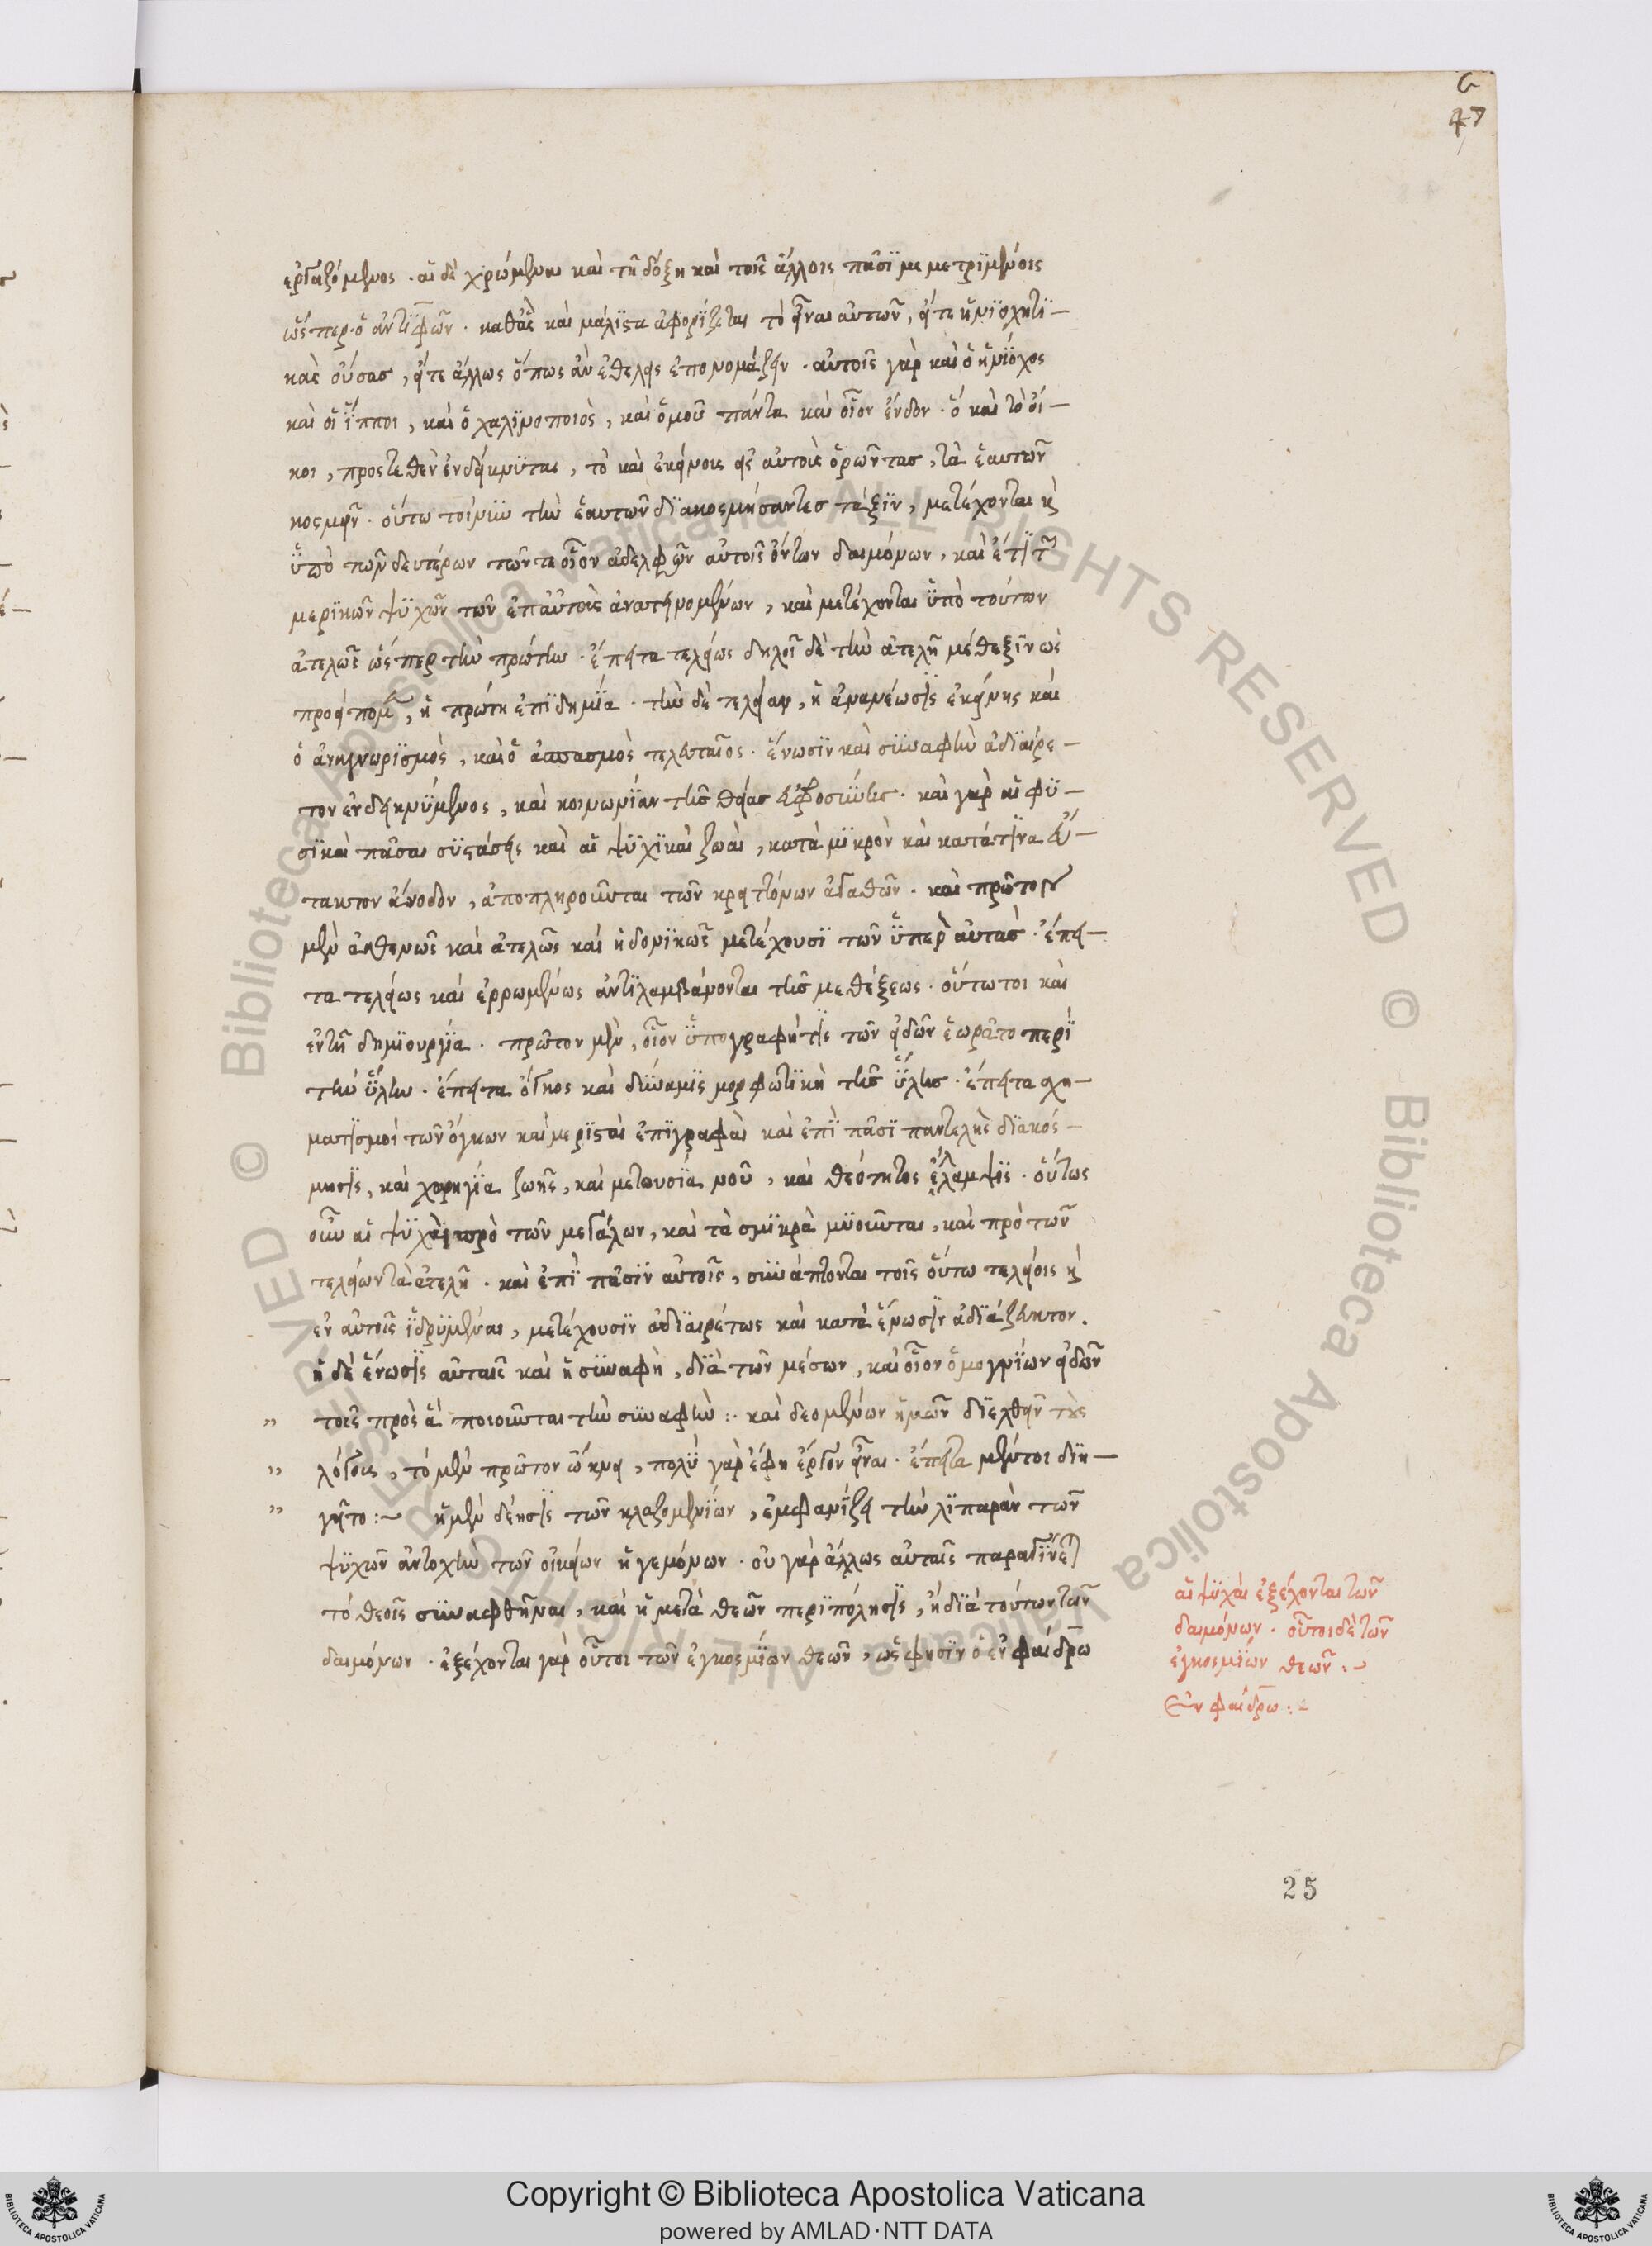 G
47
ἐργαζόμενος · αἱ δὲ χρώμεναι καὶ τῇ δόξῃ καὶ τοῖς ἄλλοις πᾶσϊ με μετρϊμένοις
ὥσπερ ὁ ἀντϊφῶν · καθ᾽ ἃς καὶ μάλϊστα ἀφορίζεται τὸ εἶναι αὐτῶν, εἴτε ἡνϊοχητϊ–
κὰς οὔσας, εἴτε ἄλλως ὅπως ἂν ἐθέλῃς ἐπονομάζειν · αὐτοῖς γὰρ καὶ ὁ ἡνΐοχος
καὶ οἱ ἵπποι, καὶ ὁ χαλϊνοποιὸς, καὶ ὁμοῦ πάντα καὶ οἷον ἔνδον · ὃ καὶ τὸ οἴ–
κοι, προστεθὲν ἐνδείκνϋται, τὸ καὶ ἐκείνοις εἰς αὐτοὺς ὁρῶντας, τὰ ἑαυτῶν
κοσμεῖν · οὕτω τοίνϋν τὴν ἑαυτῶν δϊακοσμήσαντες τάξϊν, μετέχονται καὶ
ὑπὸ τῶν δευτέρων τῶν τε οἷον ἀδελφῶν αὐτοῖς ὄντων δαιμόνων, καὶ ἔτϊ τῶν
μερϊκῶν ψϋχῶν τῶν ἐπ᾽ αὐτοὺς ἀνατεινομένων, καὶ μετέχονται ὑπὸ τούτων
ἀτελῶς ὥσπερ τὴν πρώτην · ἔπειτα τελείως δηλοῖ δὲ τὴν ἀτελῆ μέθεξϊν ὡς
προείπομεν, ἡ πρώτη ἐπϊδημΐα · τὴν δὲ τελείαν, ἡ ἀνανέωσϊς ἐκείνης καὶ
ὁ ἀνηγνωρϊσμὸς, καὶ ὁ ἀσπασμὸς τελευταῖος · ἕνωσϊν καὶ σϋναφὴν ἀδϊαίρε–
τον ἐνδεικνϋμενος, καὶ κοινωνΐαν τῆς θείας εὐφροσϋνης · καὶ γὰρ αἱ φϋ–
σϊκαὶ πᾶσαι σϋστάσεις καὶ αἱ ψϋχϊκαὶ ζωαὶ, κατὰ μϊκρὸν καὶ κατά τϊνα εὔ–
τακτον ἄνοδον, ἀποπληροῦνται τῶν κρειττόνων ἀγαθῶν · καὶ πρῶτον
μὲν ἀσθενῶς καὶ ἀτελῶς καὶ ἡδονϊκῶς μετέχουσϊ τῶν ὑπὲρ αὐτὰς · ἔπει–
τα τελείως καὶ ἐρρωμένως ἀντϊλαμβάνονται τῆς μεθέξεως · οὕτω τοι καὶ
ἐν τῇ δημϊουργΐα · πρῶτον μὲν, οἷον ὑπογραφή τϊς τῶν εἰδῶν ἑωρᾶτο περὶ
τὴν ὕλην · ἔπειτα ὄγκος καὶ δύναμϊς μορφωτϊκὴ τῆς ὕλης · ἔπειτα σχη–
ματϊσμοί τῶν ὄγκων καὶ μερϊσταὶ ἐπϊγραφαὶ καὶ ἐπὶ πᾶσϊ παντελὴς δϊακόσ–
μησϊς, καὶ χορηγΐα ζωῆς, καὶ μετουσΐα νοῦ, καὶ θεότητος ἔλλαμψϊς · οὕτως
οὖν αἱ ψϋχαὶ πρὸ τῶν μεγάλων, καὶ τὰ σμϊκρὰ μϋοῦνται, καὶ πρὸ τῶν
τελείων τὰ ἀτελῆ · καὶ ἐπὶ πᾶσϊν αὐτοῖς, σϋνάπτονται τοῖς οὕτω τελείοις καὶ
ἐν αὐτοῖς ἱδρϋμέναι, μετέχουσϊν ἀδϊαιρέτως καὶ κατὰ ἕνωσϊν ἀδϊάζευκτον.
ἡ δὲ ἕνωσϊς αὐταῖς καὶ ἡ σϋναφὴ, δϊὰ τῶν μέσων, καὶ οἷον ὁμογνΐων εἰδῶν
„ τοῖς πρὸς ἃ ποιοῦνται τὴν σϋναφὴν :· καὶ δεομένων ἡμῶν δϊελθεῖν τοὺς
„ λόγους, τὸ μὲν πρῶτον ὤκνει, πολὺ γὰρ ἔφη ἔργον εἶναι · ἔπειτα μέντοι δϊη–
„ γεῖτο :~ ἡ μὲν δέησϊς τῶν κλαζομενΐων, ἐμφανΐζει τὴν λϊπαρὰν τῶν
ψϋχῶν ἀντοχὴν τῶν οἰκείων ἡγεμόνων · οὐ γὰρ ἄλλως αὐταῖς παραγΐνεται
τό θεοῖς σϋναφθῆναι, καὶ ἡ μετὰ θεῶν περϊπόλησϊς, ἢ δϊὰ τούτων τῶν
δαιμόνων · ἐξέχονται γὰρ οὗτοι τῶν ἐγκοσμΐων θεῶν, ὥς φησϊν ὁ ἐν φαίδρω
αἱ ψϋχαὶ ἐξέχονται τῶν
δαιμόνων · οὗτοι δὲ τῶν
ἐγκοσμΐων θεῶν :~
ἐν φαίδρω :~
25
Copyright © Biblioteca Apostolica Vaticana
powered by AMLAD·NTT DATA